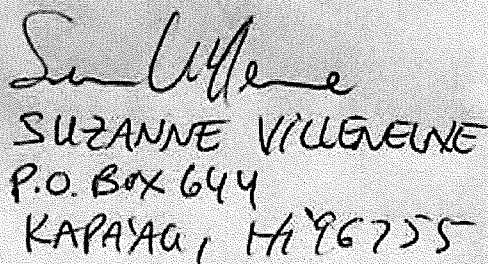 SUZANNE VILLENEUVE
P.O. BOX 644
KAPA'AU, Hi 96755